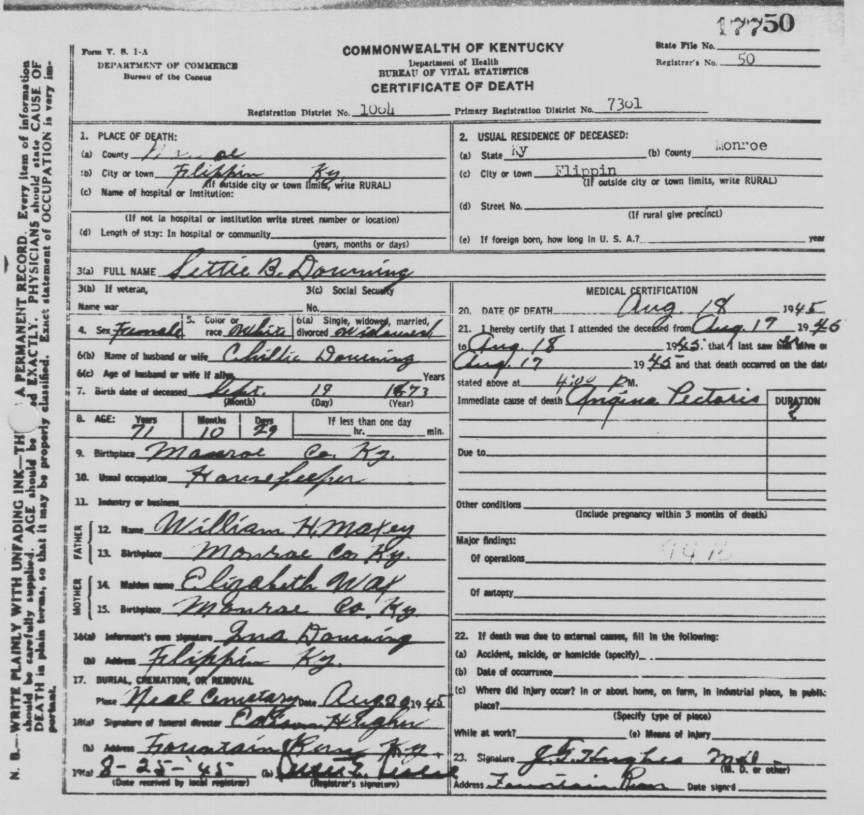 17750
Form V. S. 1-A
DEPARTMENT OF COMMERCE
Bureau of the Census
COMMONWEALTH OF KENTUCKY
Department of Health
BUREAU OF VITAL STATISTICS
CERTIFICATE OF DEATH
State File No.
Registrar's No. 50
Registration District No. 1004 Primary Registration District No. 7301
N. B.—WRITE PLAINLY WITH UNFADING INK—TH A PERMANENT RECORD. Every item of information
should be carefully supplied. AGE should be ed EXACTLY. PHYSICIANS should state CAUSE OF
DEATH in plain terms, so that it may be properly classified. Exact statement of OCCUPATION is very im-
portant.
1. PLACE OF DEATH:
(a) County
(b) City or town Flippin Ky
(If outside city or town limits, write RURAL)
(c) Name of hospital or institution:
(If not in hospital or institution write street number or location)
(d) Length of stay: In hospital or community
(years, months or days)
2. USUAL RESIDENCE OF DECEASED:
(a) State Ky (b) County Monroe
(c) City or town Flippin
(If outside city or town limits, write RURAL)
(d) Street No.
(If rural give precinct)
(e) If foreign born, how long in U. S. A.? year
3(a) FULL NAME Settie B. Downing
3(b) If veteran, 3(c) Social Security
Name war No.
4. Sex Female 5. Color or race White 6(a) Single, widowed, married, divorced Widowed
6(b) Name of husband or wife Chillie Downing
6(c) Age of husband or wife if alive Years
7. Birth date of deceased Sept. 19 1873
(Month) (Day) (Year)
8. AGE: Years Months Days If less than one day
71 10 29 hr. min.
9. Birthplace Monroe Co. Ky.
10. Usual occupation Housekeeper
11. Industry or business
FATHER
12. Name William H. Maxey
13. Birthplace Monroe Co. Ky.
MOTHER
14. Maiden name Elizabeth Wax
15. Birthplace Monroe Co. Ky
16(a) Informant's own signature Ina Downing
(b) Address Flippin Ky.
17. BURIAL, CREMATION, OR REMOVAL
Place Neal Cemetary Date Aug 20 1945
18(a) Signature of funeral director
(b) Address Fountain Run, Ky.
19(a) 8-25-'45 (b)
(Date received by local registrar) (Registrar's signature)
MEDICAL CERTIFICATION
20. DATE OF DEATH Aug. 18 1945
21. I hereby certify that I attended the deceased from Aug. 17 1945
to Aug. 18 1945 that I last saw alive on
Aug. 17 1945 and that death occurred on the date
stated above at 4:00 P.M.
Immediate cause of death Angina Pectoris DURATION
2
Due to
Other conditions
(Include pregnancy within 3 months of death)
Major findings:
Of operations
Of autopsy
22. If death was due to external causes, fill in the following:
(a) Accident, suicide, or homicide (specify)
(b) Date of occurrence
(c) Where did injury occur? In or about home, on farm, in industrial place, in public
place?
(Specify type of place)
While at work? (e) Means of injury
23. Signature J. F. Hughes M.D.
(M. D. or other)
Address Fountain Run Date signed